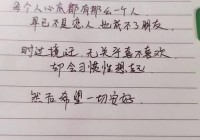 每个人心底都有那么一个人
早已不是恋人 也成不了朋友
时过境迁 无关乎喜不喜欢
却会习惯性想起
然后希望一切安好